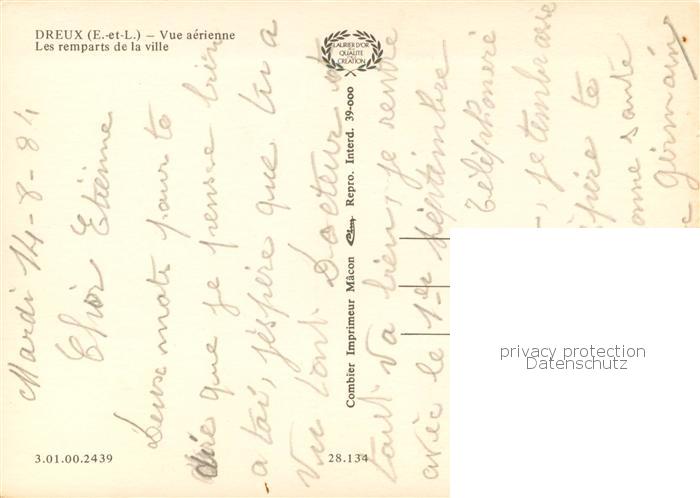 DREUX (E.-et-L.) — Vue aérienne
Les remparts de la ville
LAURIER D'OR
DE LA
QUALITÉ
DE LA
CREATION
Combier Imprimeur Mâcon Cim Repro. Interd. 39-000
3.01.00.2439
28.134
Mardi 14-8-84
Cher Etienne
Deux mots pour te
dire que je pense bien
a toi, j'espère que tu a
vue ton Docteur et
tout va bien, je rentre
avec le 1er septembre
Téléphoneré
, je t'embrasse
spère te
onne santé
Germain
privacy protection
Datenschutz